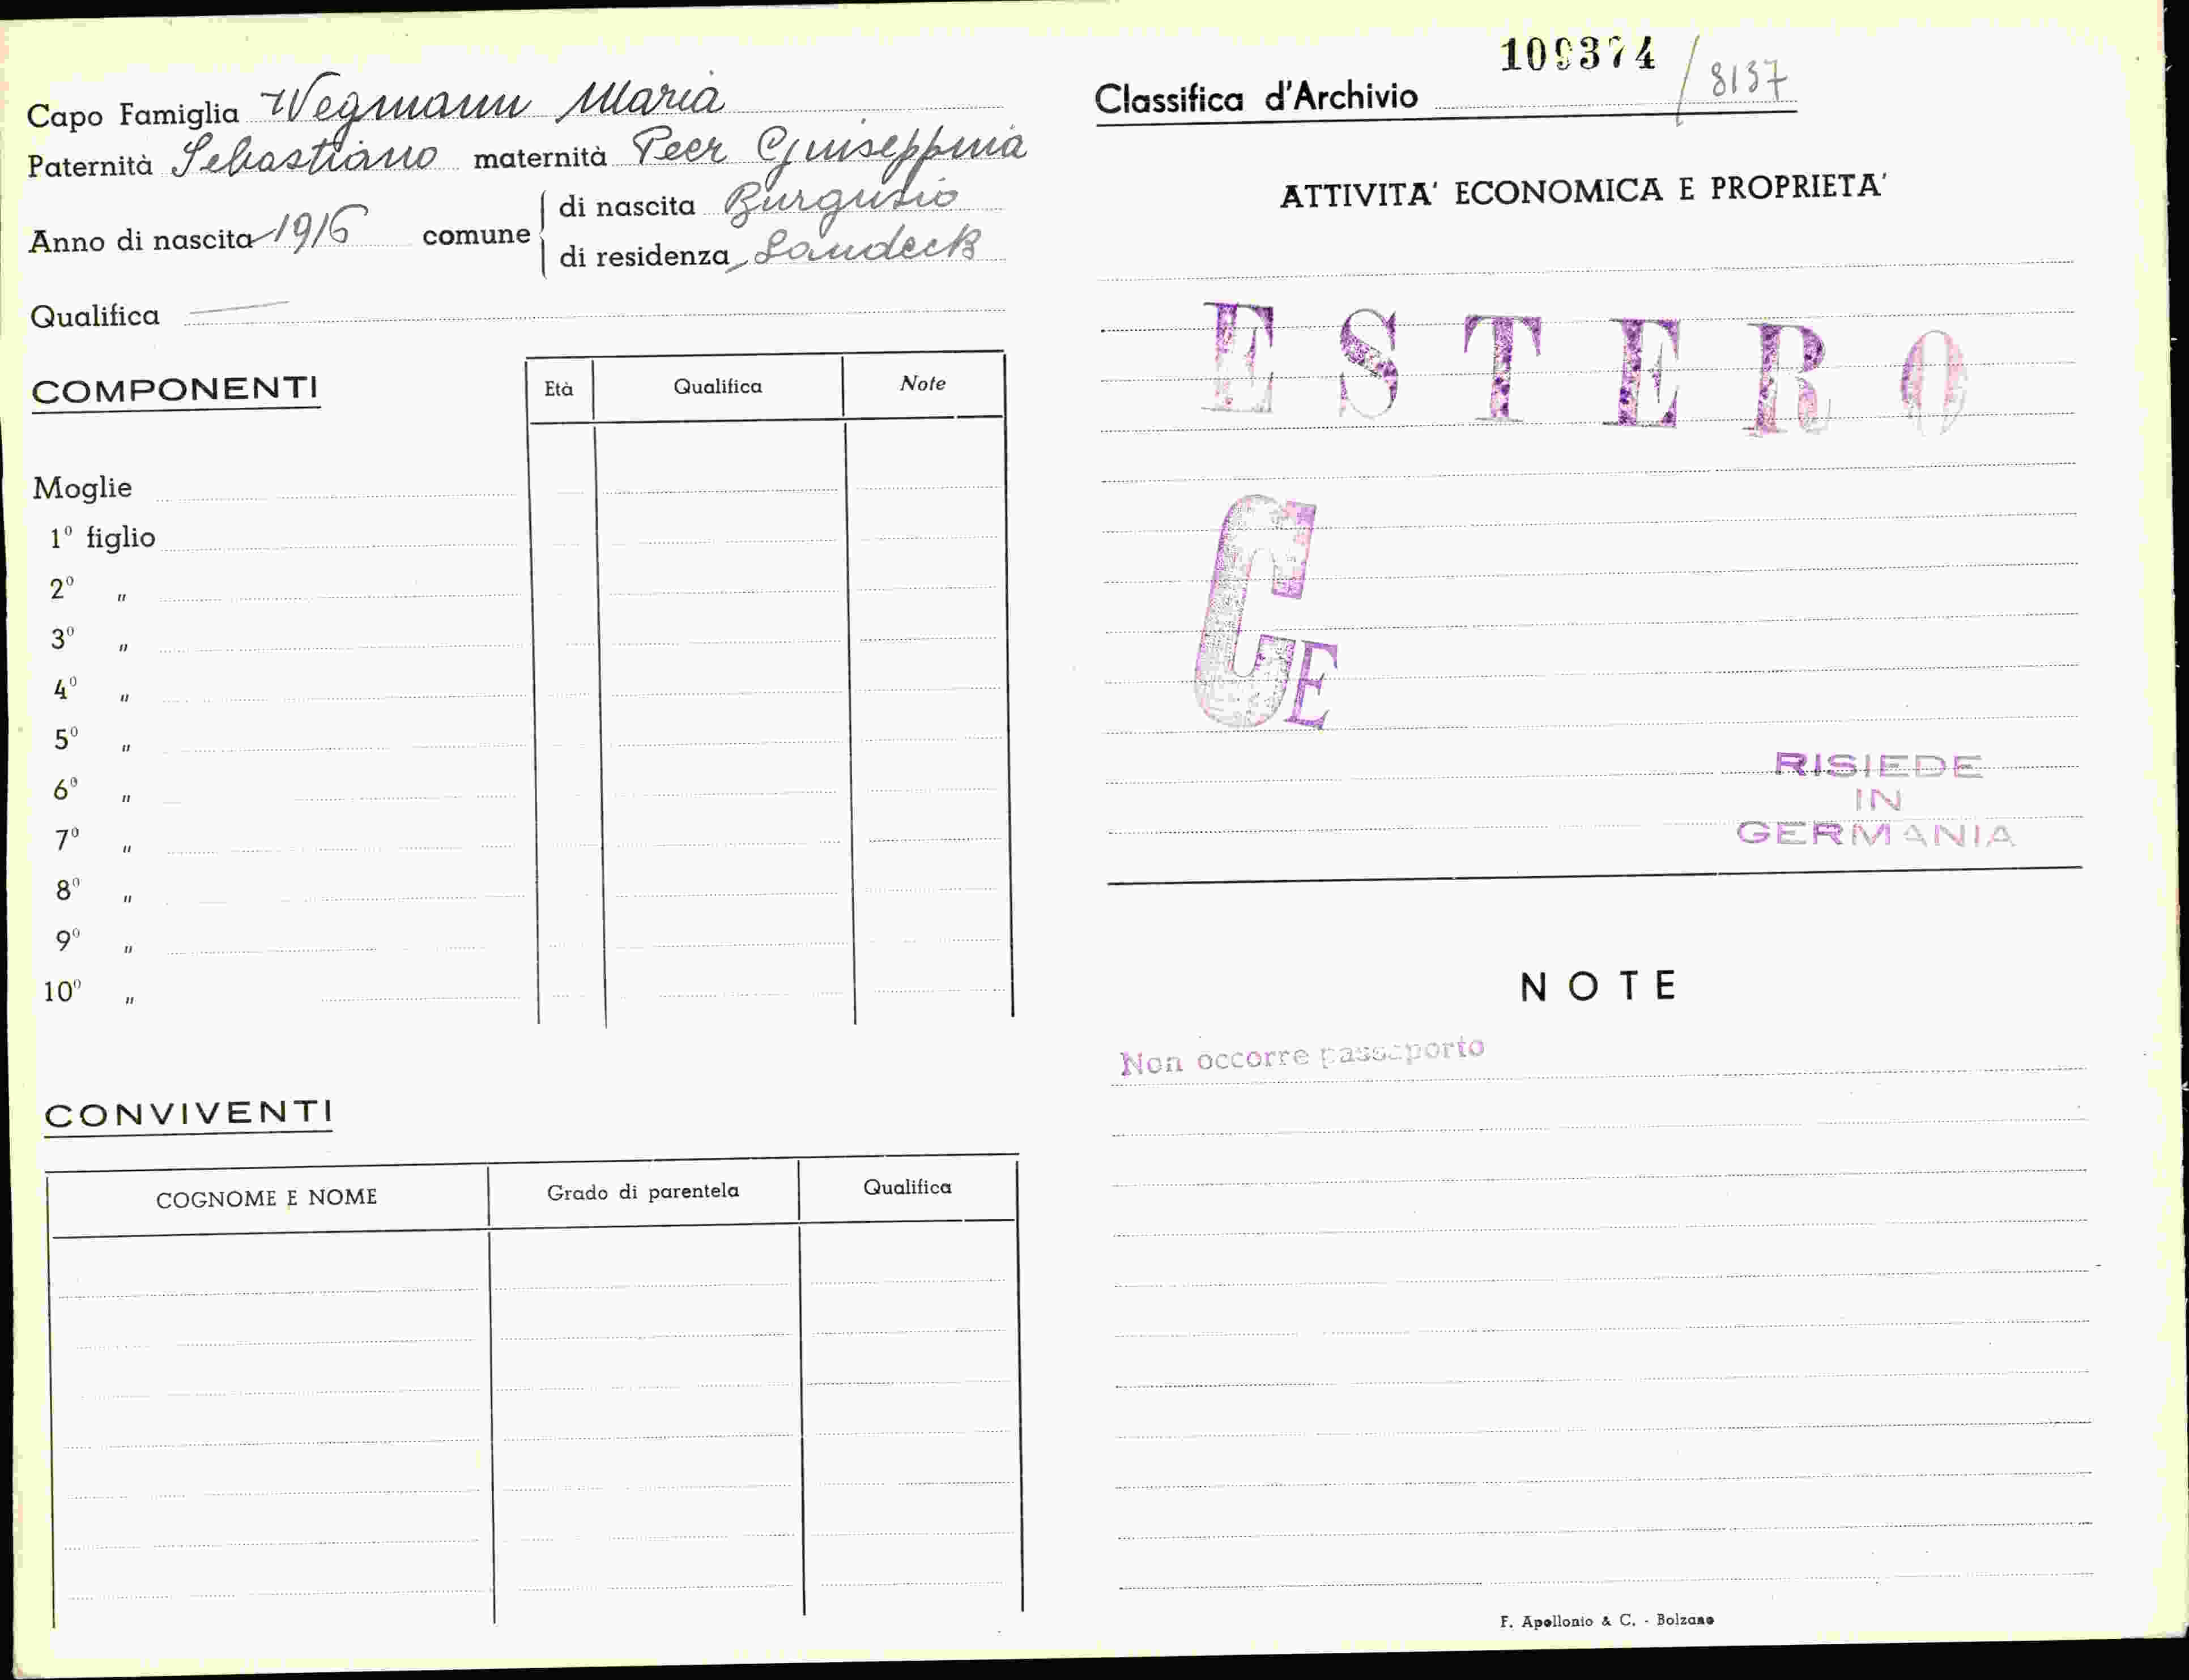 Capo Famiglia Wegmann Maria
Paternità Sebastiano maternità Peer Giuseppina
Anno di nascita 1916 comune
di nascita Burgusio
di residenza Landeck
Qualifica —
COMPONENTI
Età Qualifica Note
Moglie
1º figlio
2º "
3º "
4º "
5º "
6º "
7º "
8º "
9º "
10º "
CONVIVENTI
COGNOME E NOME Grado di parentela Qualifica
109374 / 8137
Classifica d'Archivio
ATTIVITA' ECONOMICA E PROPRIETA'
ESTERO
G E
RISIEDE
IN
GERMANIA
NOTE
Non occorre passaporto
F. Apollonio & C. - Bolzano